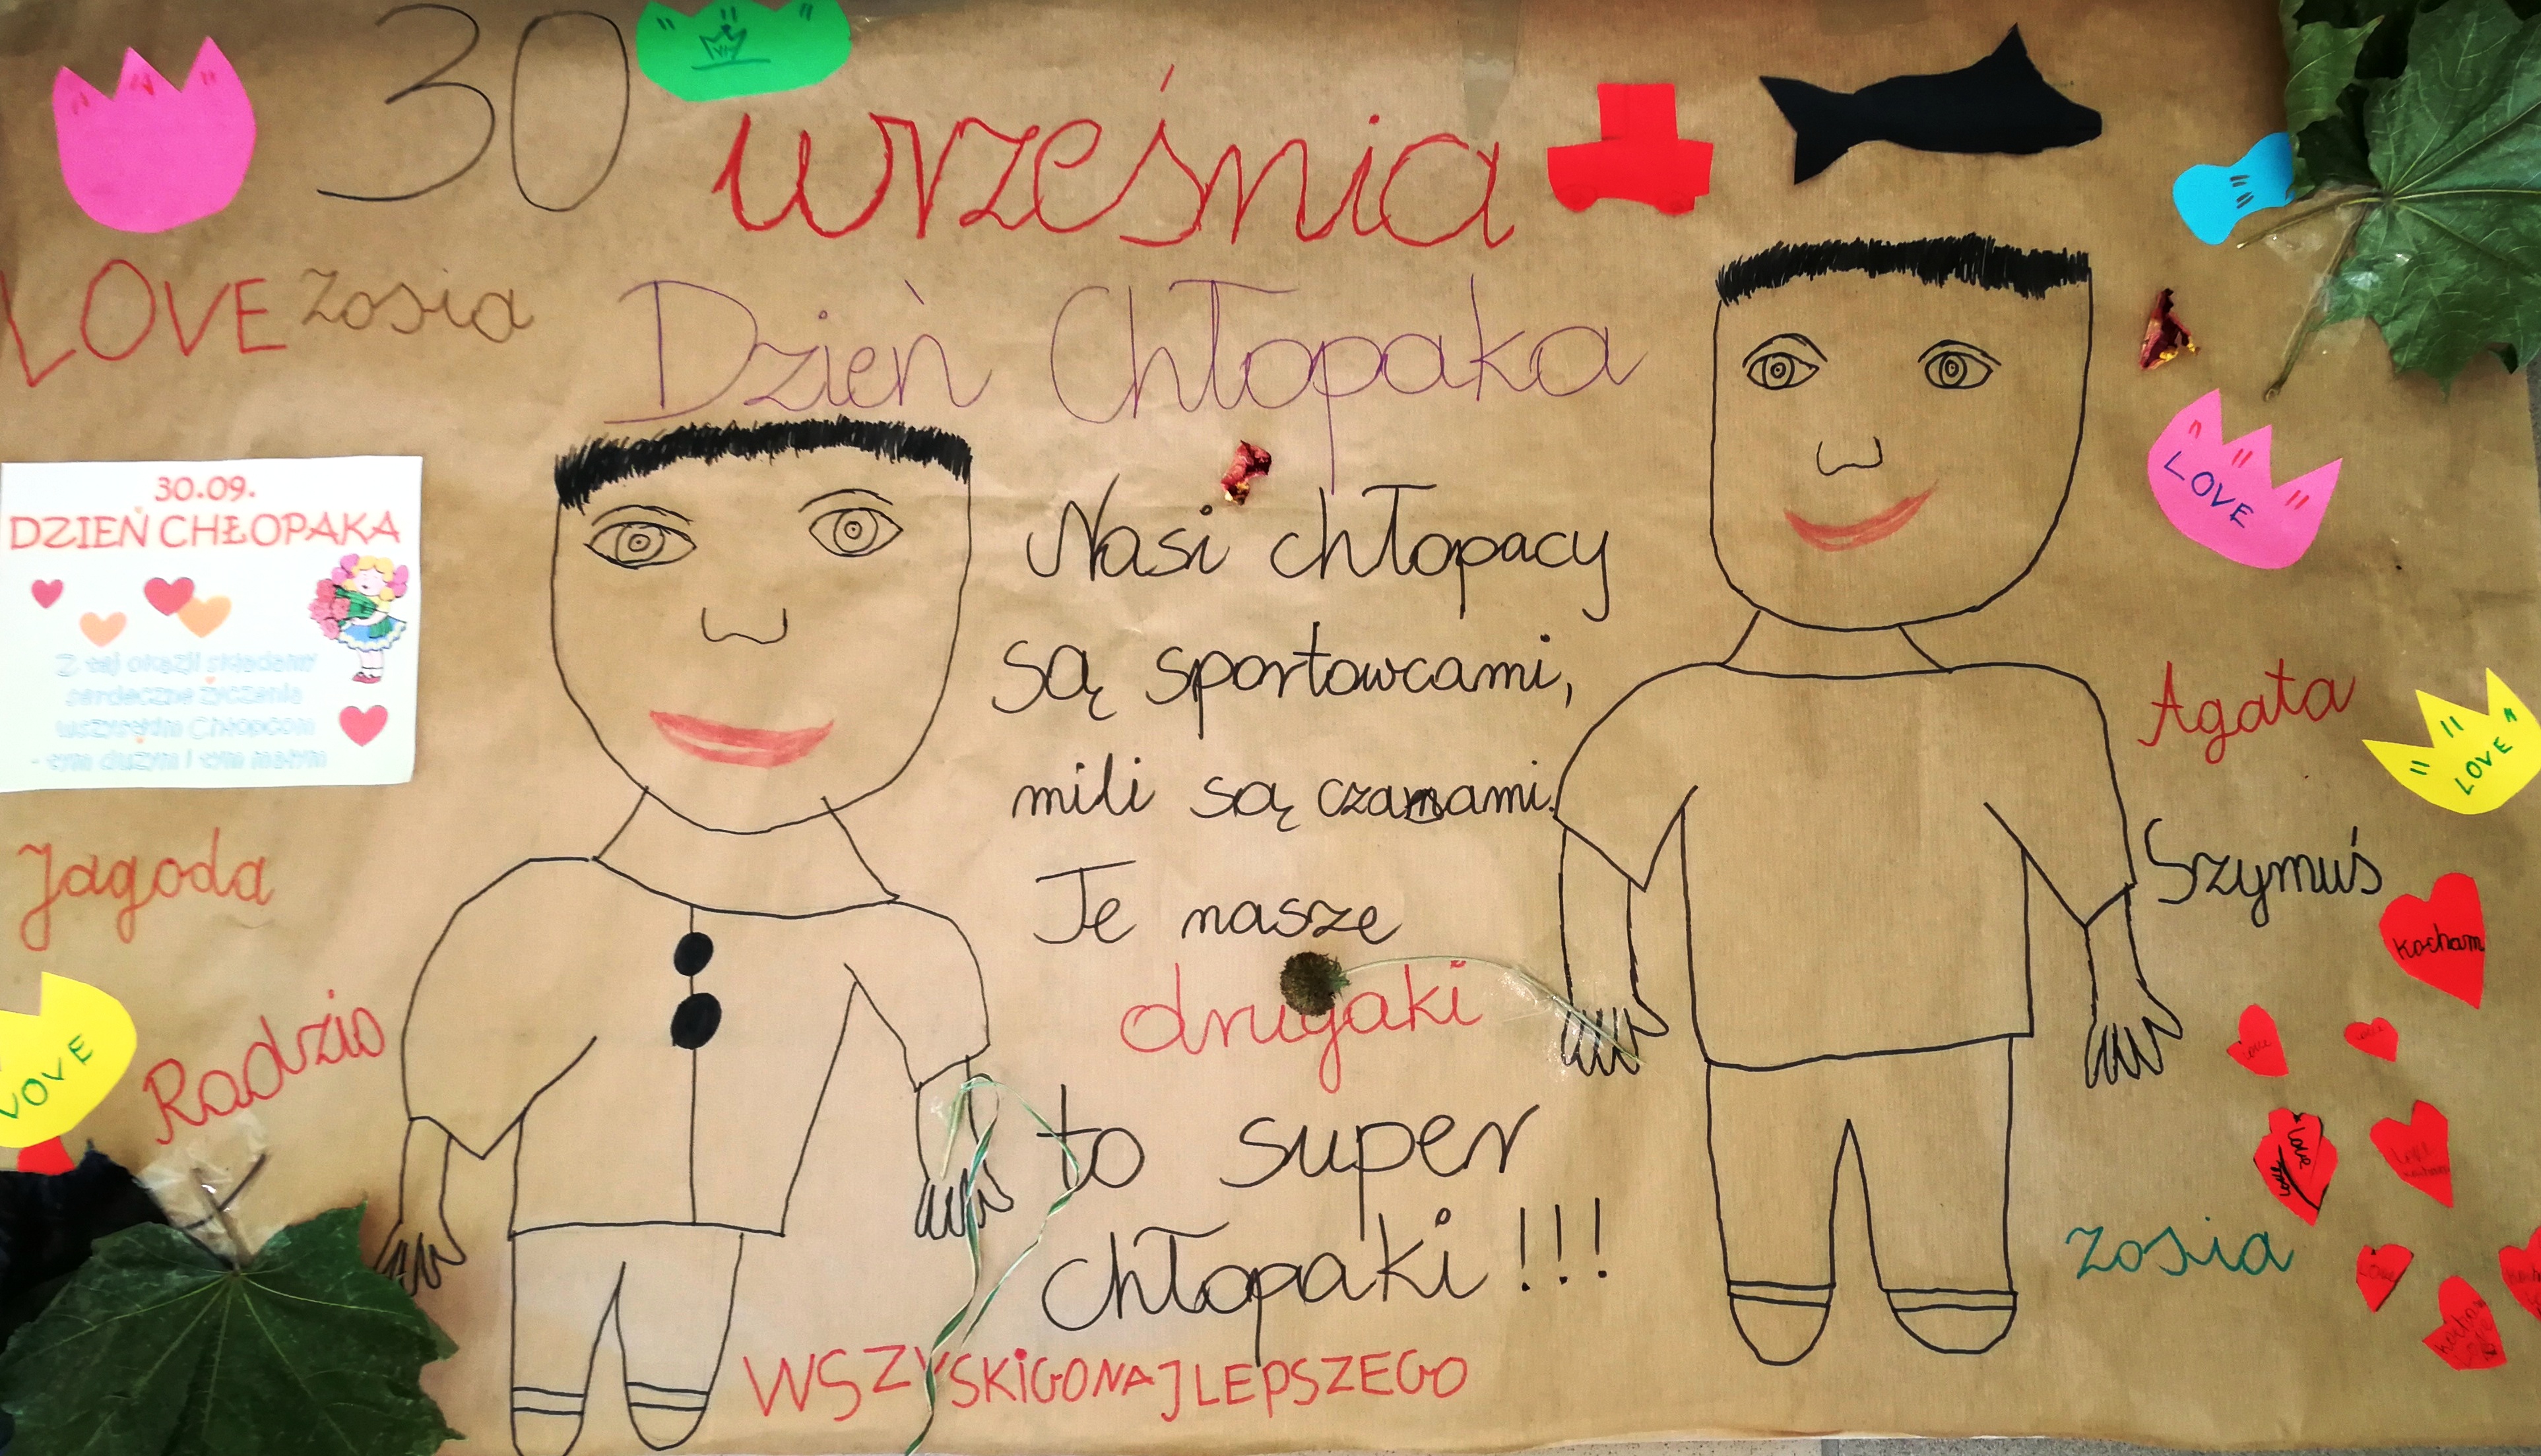 30 września
LOVE Zosia
Dzień Chłopaka
30.09.
DZIEŃ CHŁOPAKA
Z tej okazji składamy
serdeczne życzenia
wszystkim Chłopcom
- tym dużym i tym małym
Nasi chłopacy
są sportowcami,
mili są czasami.
Te nasze
drugaki
to super
chłopaki!!!
WSZYSKIGONAJLEPSZEGO
Jagoda
LOVE
Radzio
LOVE
Agata
LOVE
Szymuś
Kocham
Love
Love
Love
Love
Love
kocham
Zosia
Love
Kocham